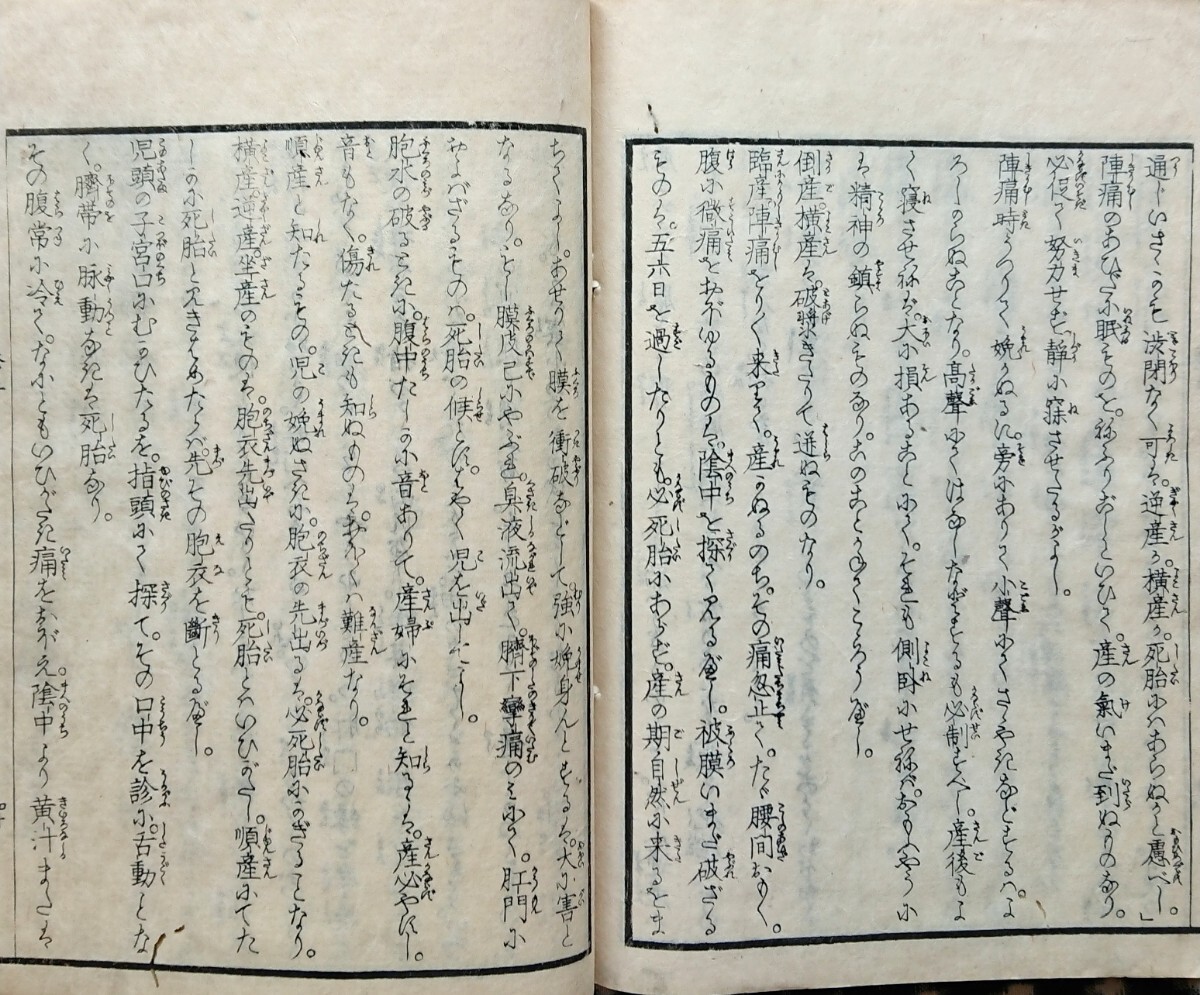 通じいさゝかも渋閉なく可は。逆産か。横産か。死胎にはあらぬかと慮べし。」
陣痛のあひだに眠ものを。ねふりおこしといひて。産の氣いまだ到ぬりのなり。
必促て努力せしむ。静に寐させてあるがよし。
陣痛時うつりて娩かぬるに。旁にありて小聲にてさゝやきなどするハ。よ
ろしからぬことなり。高聲にてはなしなどするも必制すべし。産後もよ
く寝させねば。大に損あること。それも側臥にせねバ。おもふやうに
は精神の鎮らぬものなり。このことよくこゝろうべし。
倒産。横産は。破將にきたりて迸ぬものなり。
臨産。陣痛をりく来りて。産かぬるのち。その痛忽止て。たゞ腰間おもく。
腹に微痛をおぼゆるものは。陰中を探て見るべし。被膜いまだ破ざる
ものは。五六日を過したりとも。必死胎にあらず。産の期自然に来るをま
ちてよし。あせりて膜を衝破などして強に娩身んとするは。大に害と
なるなり。もし膜皮已にやぶれ。臭液流出て。臍下攣痛のミにて。肛門に
およばざるものハ。死胎の候とす。はやく児を出してよし。
胞水の破るときに。腹中たしかに音ありて。産婦にそれと知るゝは。産必やすし。
音もなく。傷たるときも知ぬものは。おほくハ難産なり。
順産と知たるもの。児の娩ぬさきに。胞衣の先出るは。必死胎にかぎることなり。
横産逆産。坐産のものは。胞衣先出たりとも。死胎とハいひがたし。順産にてた
しかに死胎と見きはめたらバ。先その胞衣を斷とるべし。
児頭の子宮口にむかひたるを。指頭にて探て。その口中を診に。舌動となな
く。臍帯に脉動なきは死胎なり。
その腹常に冷て。なにともいひがたき痛をおぼえ。陰中より黄汁または